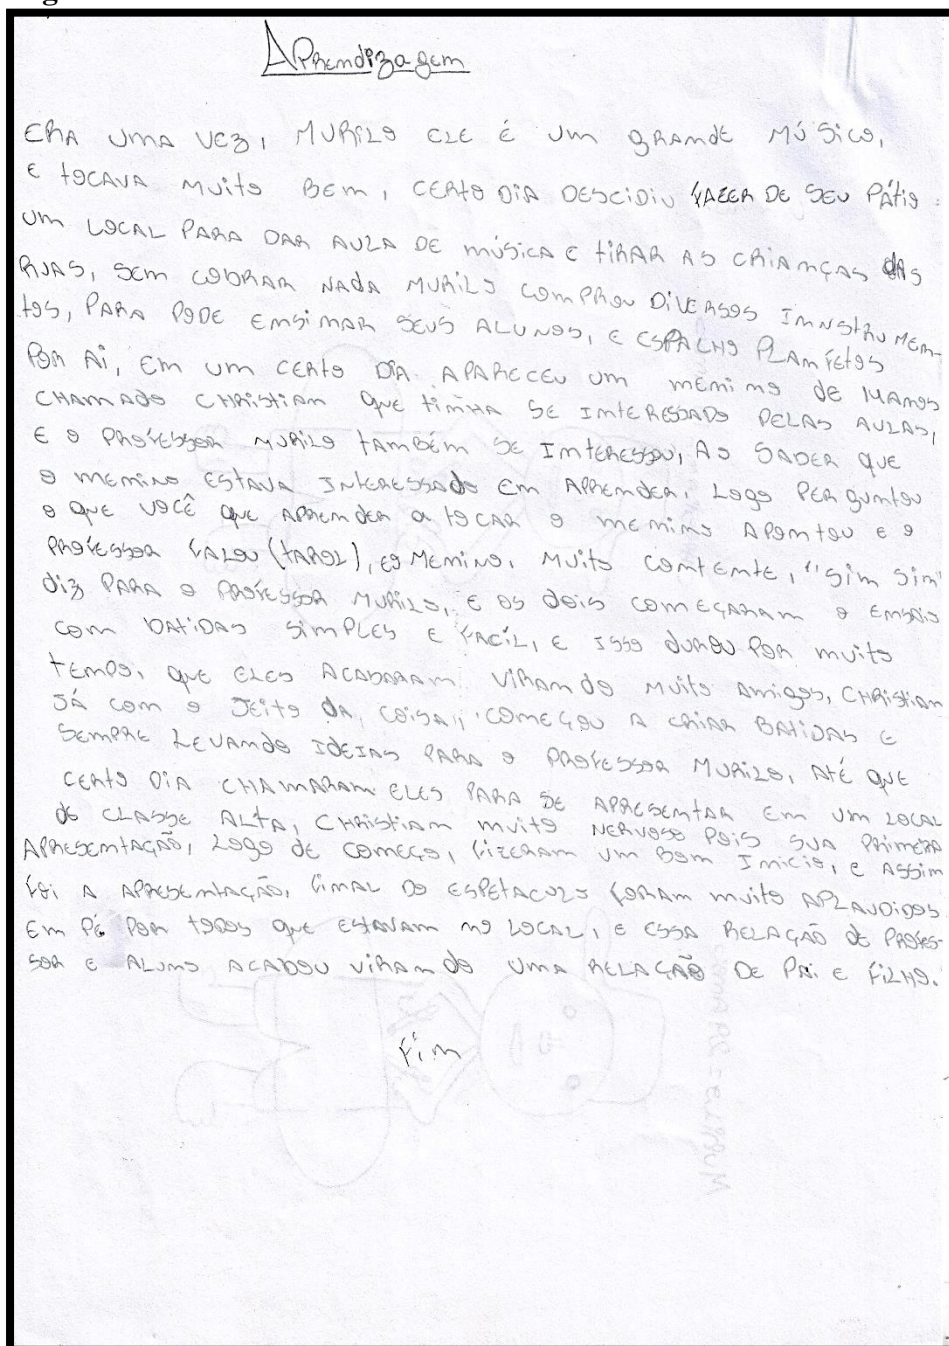 Aprendizagem
ERA UMA VEZ, MURILO ELE É UM GRANDE MÚSICO,
E TOCAVA MUITO BEM, CERTO DIA DESCIDIU FAZER DE SEU PÁTIO
UM LOCAL PARA DAR AULA DE MÚSICA E TIRAR AS CRIANÇAS DAS
RUAS, SEM COBRAR NADA MURILO COMPROU DIVERSOS IMNSTRUMEM-
TOS, PARA PODE EMSIMAR SEUS ALUNOS, E ESPALHO PLAMFETOS
POR AI, EM UM CERTO DIA APARECEU UM MEMIMO DE 14AMOS
CHAMADO CHRISTIAM QUE TIMHA SE IMTERESSADO PELAS AULAS,
E O PROFESSOR MURILO TAMBÉM SE IMTERESSOU, AO SABER QUE
O MEMINO ESTAVA INTERESSADO EM APREMDER, LOGO PERGUMTOU
O QUE VOCÊ QUE APREMDER A TOCAR O MEMIMO APOMTOU E O
PROFESSOR FALOU (TAROL), EO MEMINO, MUITO COMTEMTE, "SIM SIM"
DIZ PARA O PROFESSOR MURILO, E OS DOIS COMEÇARAM O EMSAIO
COM BATIDAS SIMPLES E FACÍL, E ISSO DUROU POR MUITO
TEMPO, QUE ELES ACABARAM VIRAMDO MUITO AMIGOS, CHRISTIAM
JÁ COM O JEITO DA, COISA,, COMEÇOU A CRIAR BATIDAS E
SEMPRE LEVAMDO IDEIAS PARA O PROFESSOR MURILO, ATÉ QUE
CERTO DIA CHAMARAM ELES PARA SE APRESEMTAR EM UM LOCAL
DE CLASSE ALTA, CHRISTIAM MUITO NERVOSO POIS SUA PRIMEIRA
APRESEMTAÇÃO, LOGO DE COMEÇO, FIZERAM UM BOM IMICIO, E ASSIM
FOI A APRESEMTAÇÃO, FIMAL DO ESPETACULO FORAM MUITO APLAUDIDOS
EM PÉ POR TODOS QUE ESTAVAM MO LOCAL, E ESSA RELAÇÃO DE PROFES-
SOR E ALUMO ACABOU VIRAMDO UMA RELAÇÃO DE PAI E FILHO.
FIM